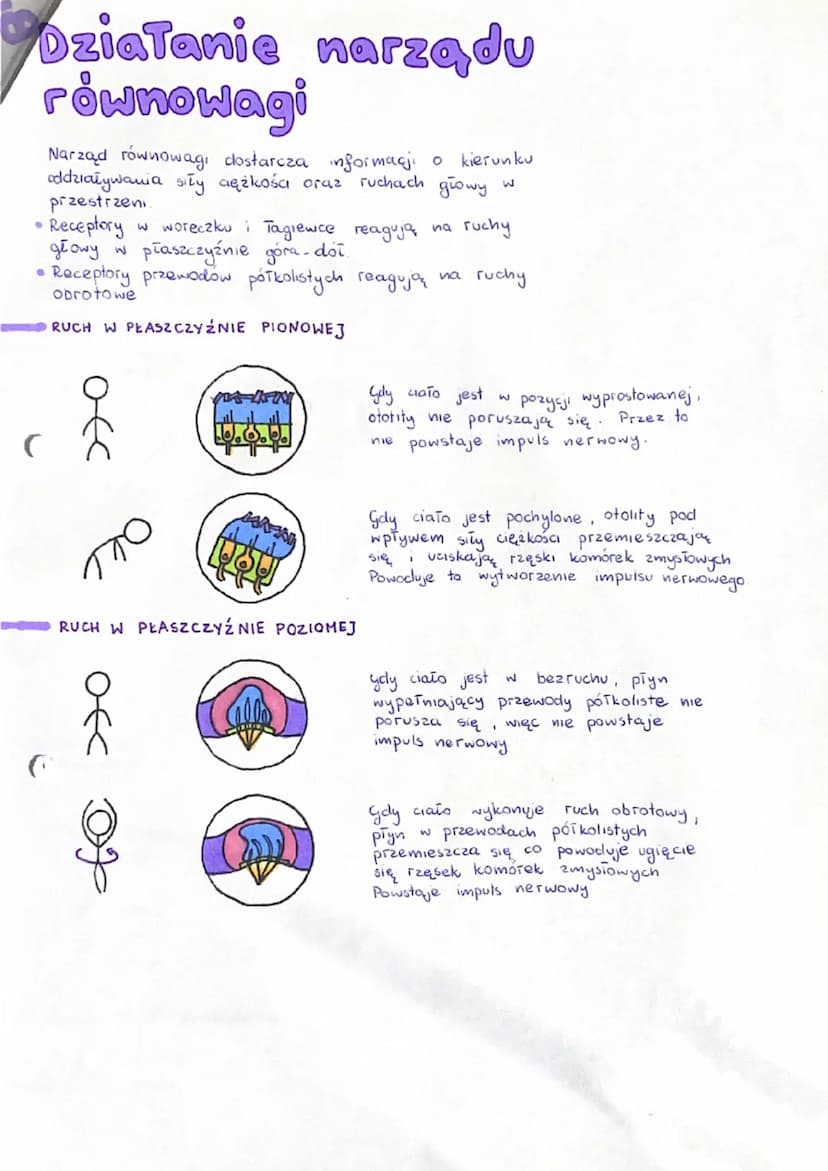 Działanie narządu
równowagi
Narząd równowagi dostarcza informacji o kierunku
oddziaływania siły ciężkości oraz ruchach głowy w
przestrzeni.
• Receptory w woreczku i łagiewce reagują na ruchy
głowy w płaszczyźnie góra-dół.
• Receptory przewodów półkolistych reagują na ruchy
obrotowe
RUCH W PŁASZCZYŹNIE PIONOWEJ
Gdy ciało jest w pozycji wyprostowanej,
otolity nie poruszają się. Przez to
nie powstaje impuls nerwowy.
Gdy ciało jest pochylone, otolity pod
wpływem siły ciężkości przemieszczają
się i uciskają rzęski komórek zmysłowych
Powoduje to wytworzenie impulsu nerwowego
RUCH W PŁASZCZYŹNIE POZIOMEJ
gdy ciało jest w bezruchu, płyn
wypełniający przewody półkoliste nie
porusza się, więc nie powstaje
impuls nerwowy
Gdy ciało wykonuje ruch obrotowy,
płyn w przewodach półkolistych
przemieszcza się co powoduje ugięcie
się rzęsek komórek zmysłowych
Powstaje impuls nerwowy